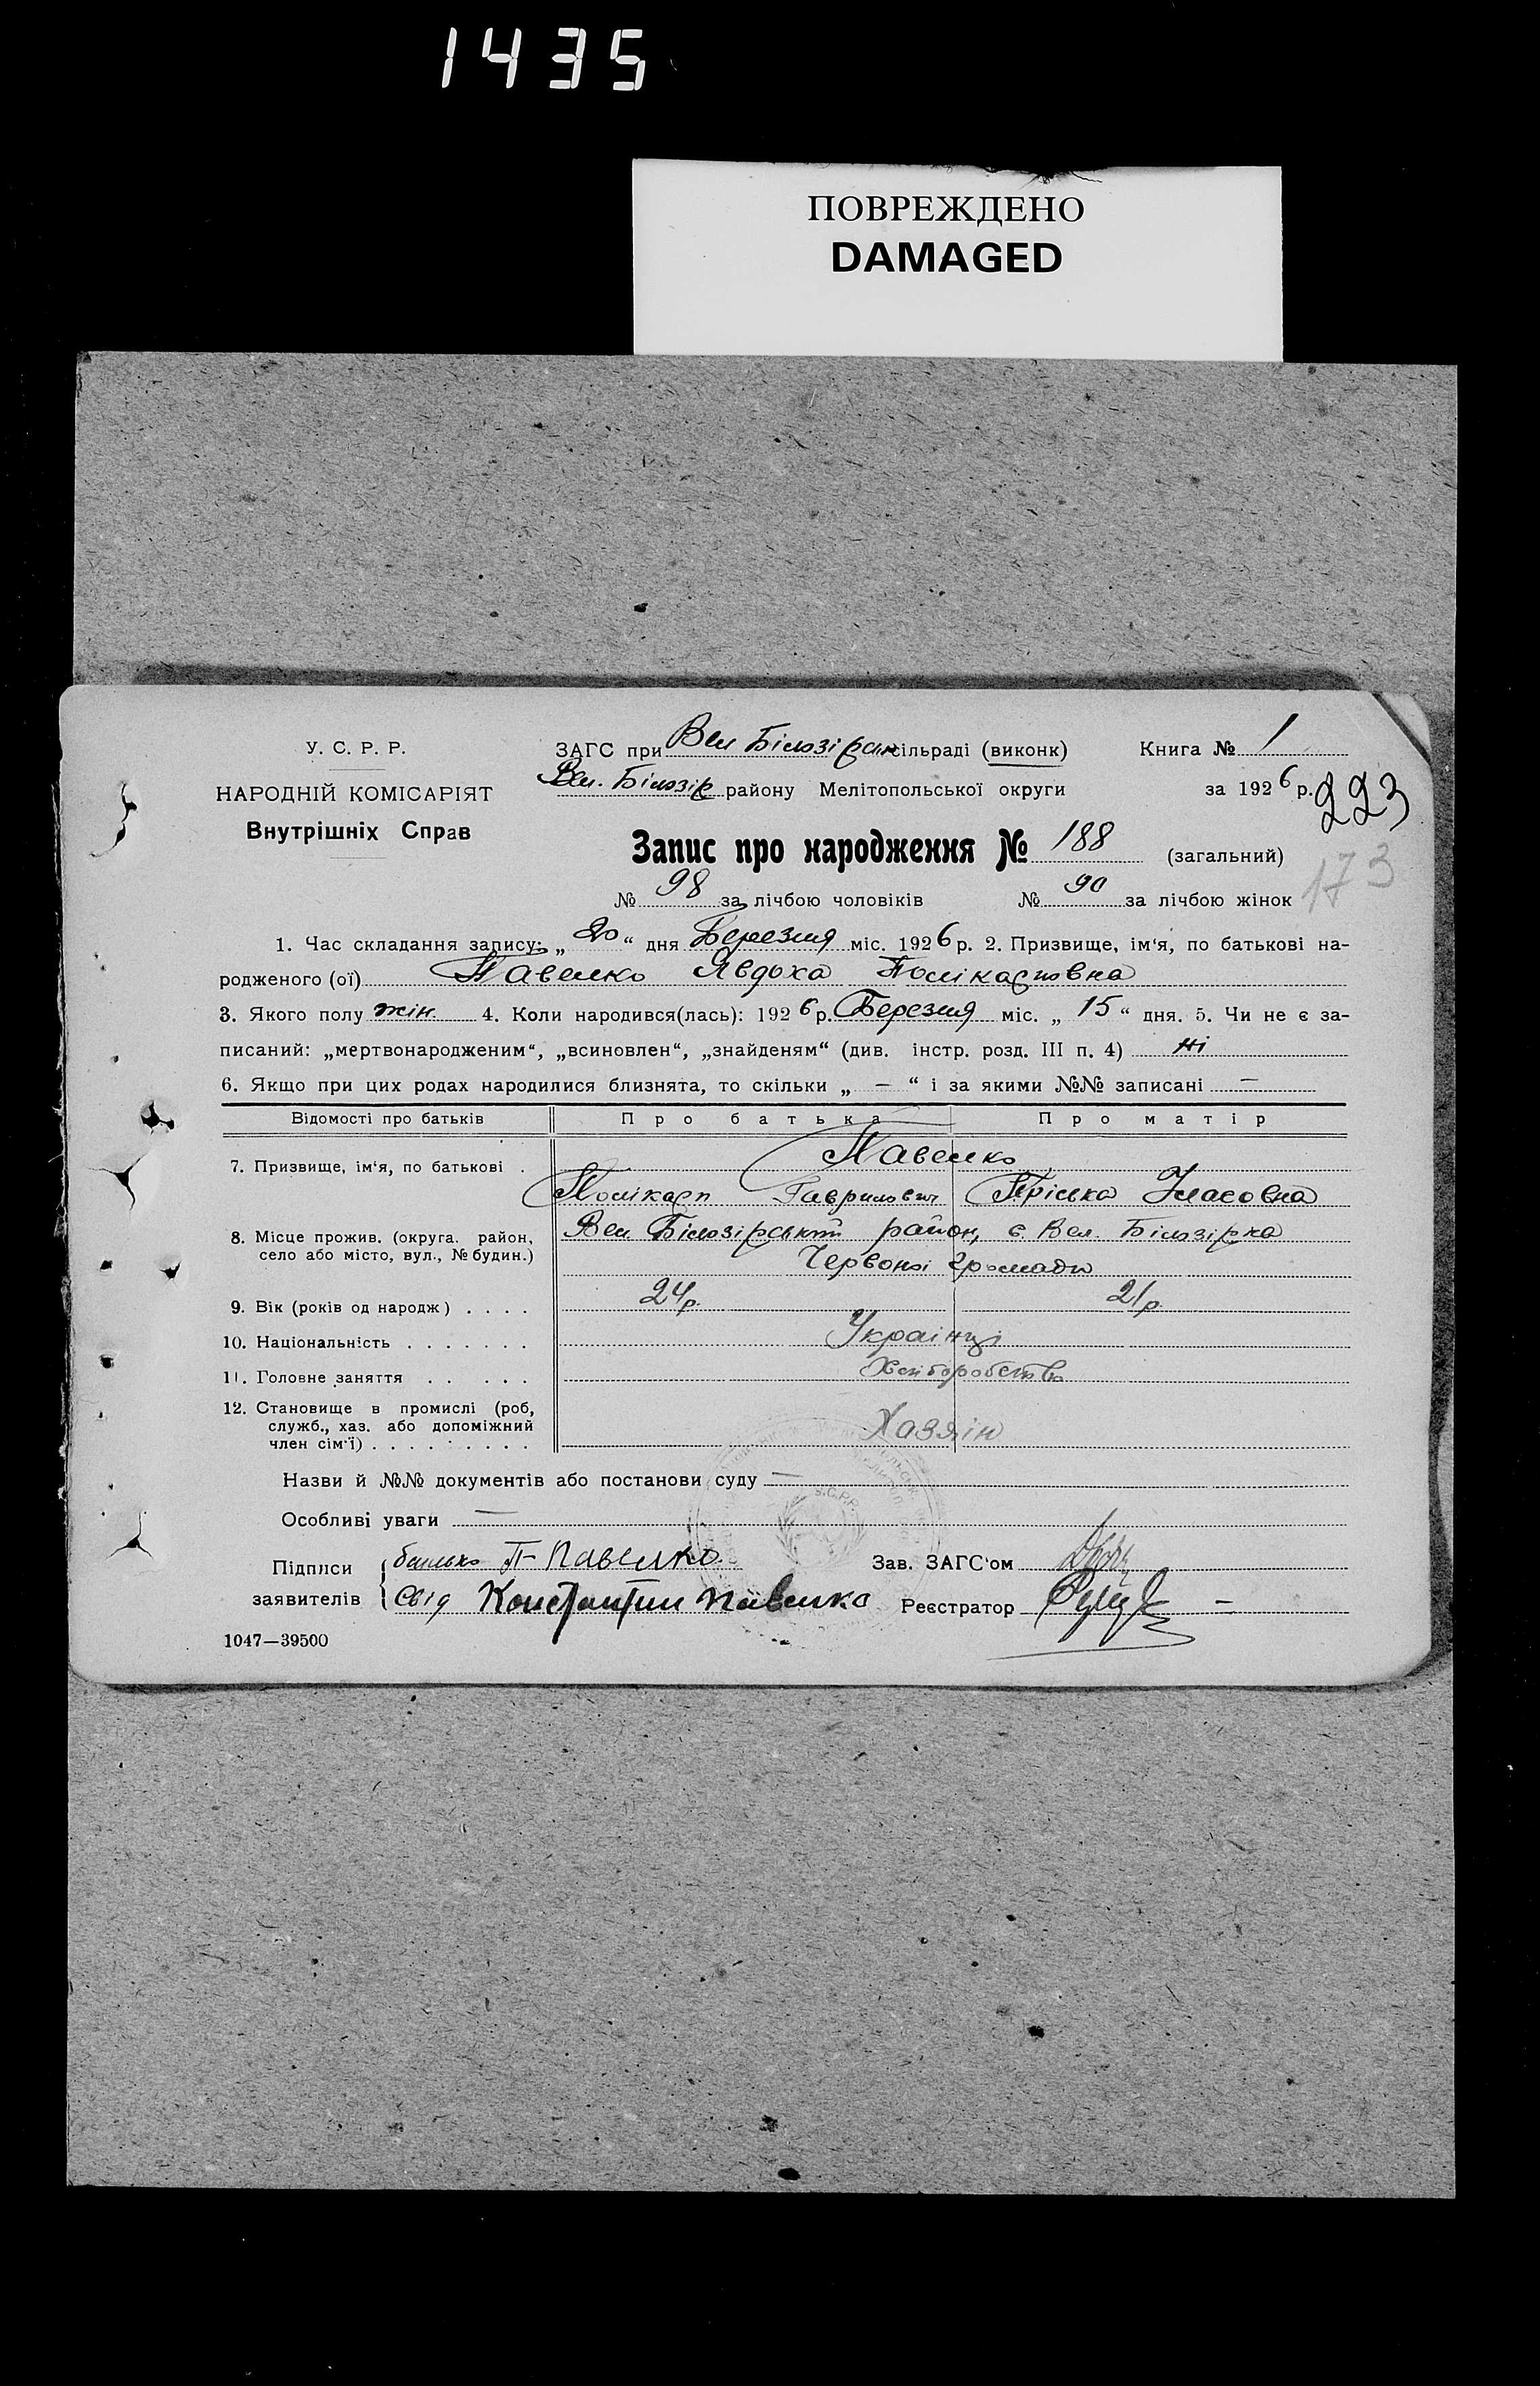 1435
ПОВРЕЖДЕНО
DAMAGED
У. С. Р. Р.
НАРОДНІЙ КОМІСАРІЯТ
Внутрішніх Справ
ЗАГС при Вел Білозірск сільраді (виконк)
Книга № 1
Вел. Білозір району Мелітопольської округи
за 1926 р.
223
Запис про народження № 188 (загальний)
173
№ 98 за лічбою чоловіків № 90 за лічбою жінок
1. Час складання запису: „ 20 “ дня Березня міс. 1926 р. 2. Призвище, ім‘я, по батькові на-
родженого (ої) Павелко Явдоха Полікарповна
3. Якого полу жін. 4. Коли народився(лась): 1926 р. Березня міс. „ 15 “ дня. 5. Чи не є за-
писаний: „мертвонародженим“, „всиновлен“, „знайденям“ (див. інстр. розд. III п. 4) ні
6. Якщо при цих родах народилися близнята, то скільки „ — “ і за якими №№ записані —
Відомості про батьків Про батька Про матір
7. Призвище, ім‘я, по батькові . Павелко
Полікарп Гаврилович Пріська Уласовна
8. Місце прожив. (округа. район,
село або місто, вул., № будин.)
Вел Білозірський район, с. Вел. Білозірка
Червоної громади
9. Вік (років од народж) . . . . 24 р. 21 р.
10. Національність . . . . . . . Українці
11. Головне заняття . . . . . Хліборобство
12. Становище в промислі (роб,
служб., хаз. або допоміжний
член сім‘ї) . . . . . . . . . Хазяїн
Назви й №№ документів або постанови суду —
Особливі уваги —
Підписи
заявителів
батько П Павелко
Свід Константин Павелко
Зав. ЗАГС‘ом
Реєстратор
У.С.Р.Р.
1047—39500